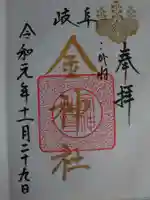 奉拝
岐阜
金神社
令和元年十一月二十九日